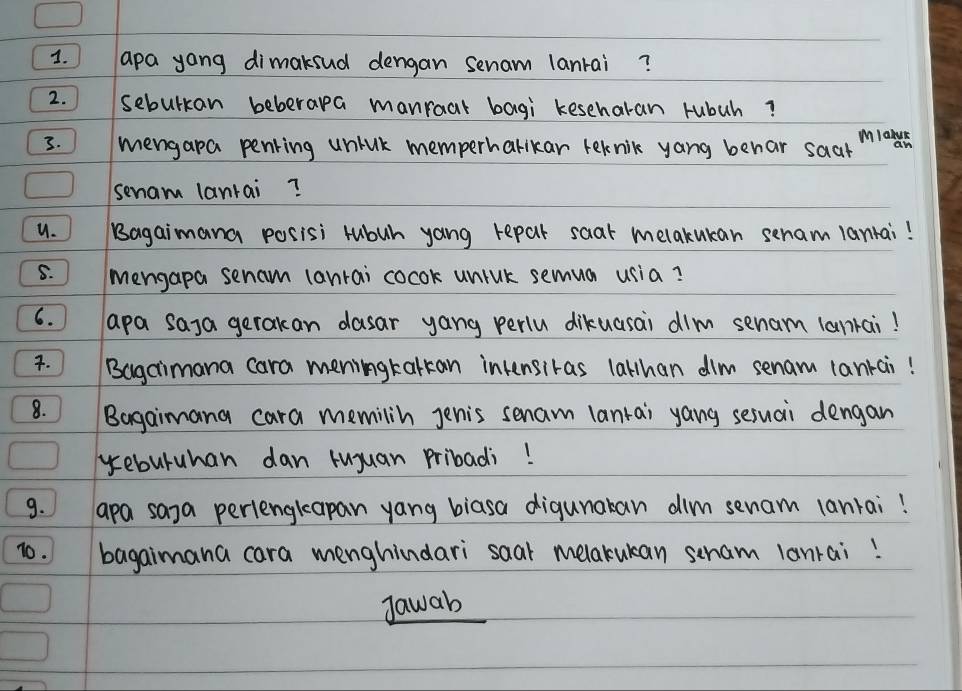 1. apa yang dimaksud dengan senam lantai ?
2. sebutkan beberapa manfaat bagi kesehatan tubuh ?
3. mengapa penting untuk memperhatikan teknik yang benar saat mlakukan
senam lantai ?
4. Bagaimana posisi tubuh yang tepat saat melakukan senam lantai !
5. mengapa senam lantai cocok untuk semua usia ?
6. apa saja gerakan dasar yang perlu dikuasai dlm senam lantai !
7. Bagaimana cara meningkatkan intensitas latihan dlm senam lantai !
8. Bagaimana cara memilih jenis senam lantai yang sesuai dengan
kebutuhan dan tujuan pribadi !
9. apa saja perlengkapan yang biasa digunakan dlm senam lantai !
10. bagaimana cara menghindari saat melakukan senam lantai !
Jawab